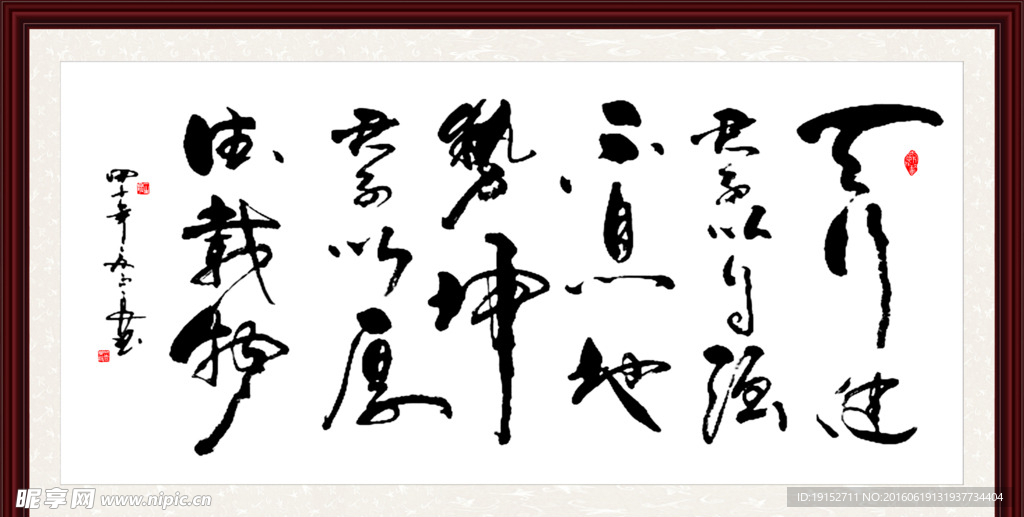 天行健
君子以自强
不息地
势坤
君子以厚
德载物
昵享网 www.nipic.cn
ID:19152711 NO:20160619131937734404